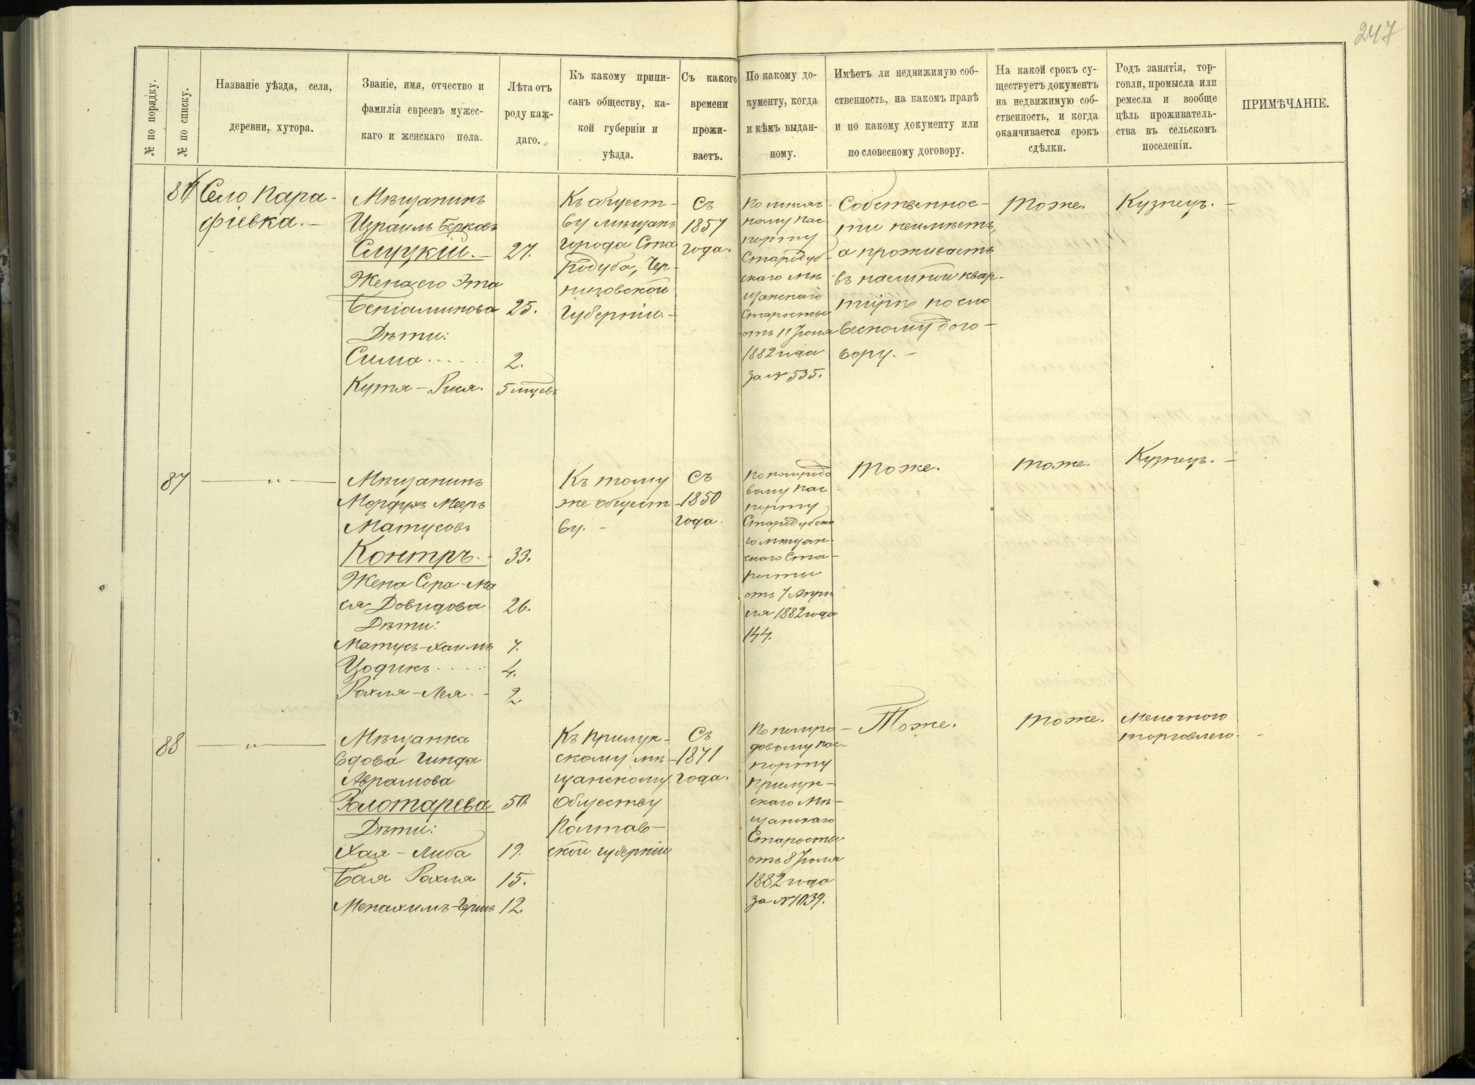 247
№ по порядку.
№ по списку.
Названіе уѣзда, села,
деревни, хутора.
Званіе, имя, отчество и
фамилія евреевъ мужес-
каго и женскаго пола.
Лѣта отъ
роду каж-
даго.
Къ какому припи-
санъ обществу, ка-
кой губерніи и
уѣзда.
Съ какого
времени
прожи-
ваетъ.
По какому до-
кументу, когда
и кѣмъ выдан-
ному.
Имѣетъ ли недвижимую соб-
ственность, на какомъ правѣ
и по какому документу или
по словесному договору.
На какой срокъ су-
ществуетъ документъ
на недвижимую соб-
ственность, и когда
оканчивается срокъ
сдѣлки.
Родъ занятія, тор-
говли, промысла или
ремесла и вообще
цѣль проживатель-
ства въ сельскомъ
поселеніи.
ПРИМѢЧАНІЕ.
86
Село Пара-
фіевка. —
Мѣщанинъ
Израиль Берковъ
Слуцкій. — 27.
Жена его Эта
Беніаминова 25.
Дѣти:
Сима 2.
Кутя - Рися. 5 мѣсяц.
Къ общест-
ву мѣщанъ
города Ста
родуба, Чер-
ниговской
Губерніи -
Съ
1857
года.
кому пас
порту
Стародуб-
скаго мѣ
щанскаго
Старосты
отъ 11 Іюня
1882 года
за № 535.
Собственнос-
ти неимѣетъ,
а проживаетъ
въ наемной квар-
тирѣ по сло
весному дого-
вору. -
Тоже.
Кузнецъ. -
87
— " —
Мѣщанинъ
Мордухъ Мееръ
Матусовъ
Контръ. - 33.
Жена Сора-Ма
ся Довидова 26.
Дѣти:
Матусъ-Хаимъ 7.
Цодикъ 4.
Рохля-Лея. - 2
Къ тому
же общест
ву. -
Съ
1850
года.
По полугодо
вому пас
порту
Стародубска
го мѣщан-
скаго Ста-
росты
отъ 7 Апрѣ
ля 1882 года
144.
Тоже.
Тоже.
Кузнецъ. -
88
— " —
Мѣщанка
вдова Гинда
Абрамова
Золотарева 50.
Дѣти:
Хая - Либа 19.
Бая Рохля 15.
Менахимъ-Гершъ 12
Къ Прилук-
скому мѣ
щанскому
Обществу
Полтав-
ской губерніи
Съ
1871
года.
По полуго-
довому пас-
порту
Прилук-
скаго Мѣ-
щанскаго
Старосты
отъ 8 Іюля
1882 года
за № 1039.
Тоже.
Тоже.
Мелочного
торговлею. -